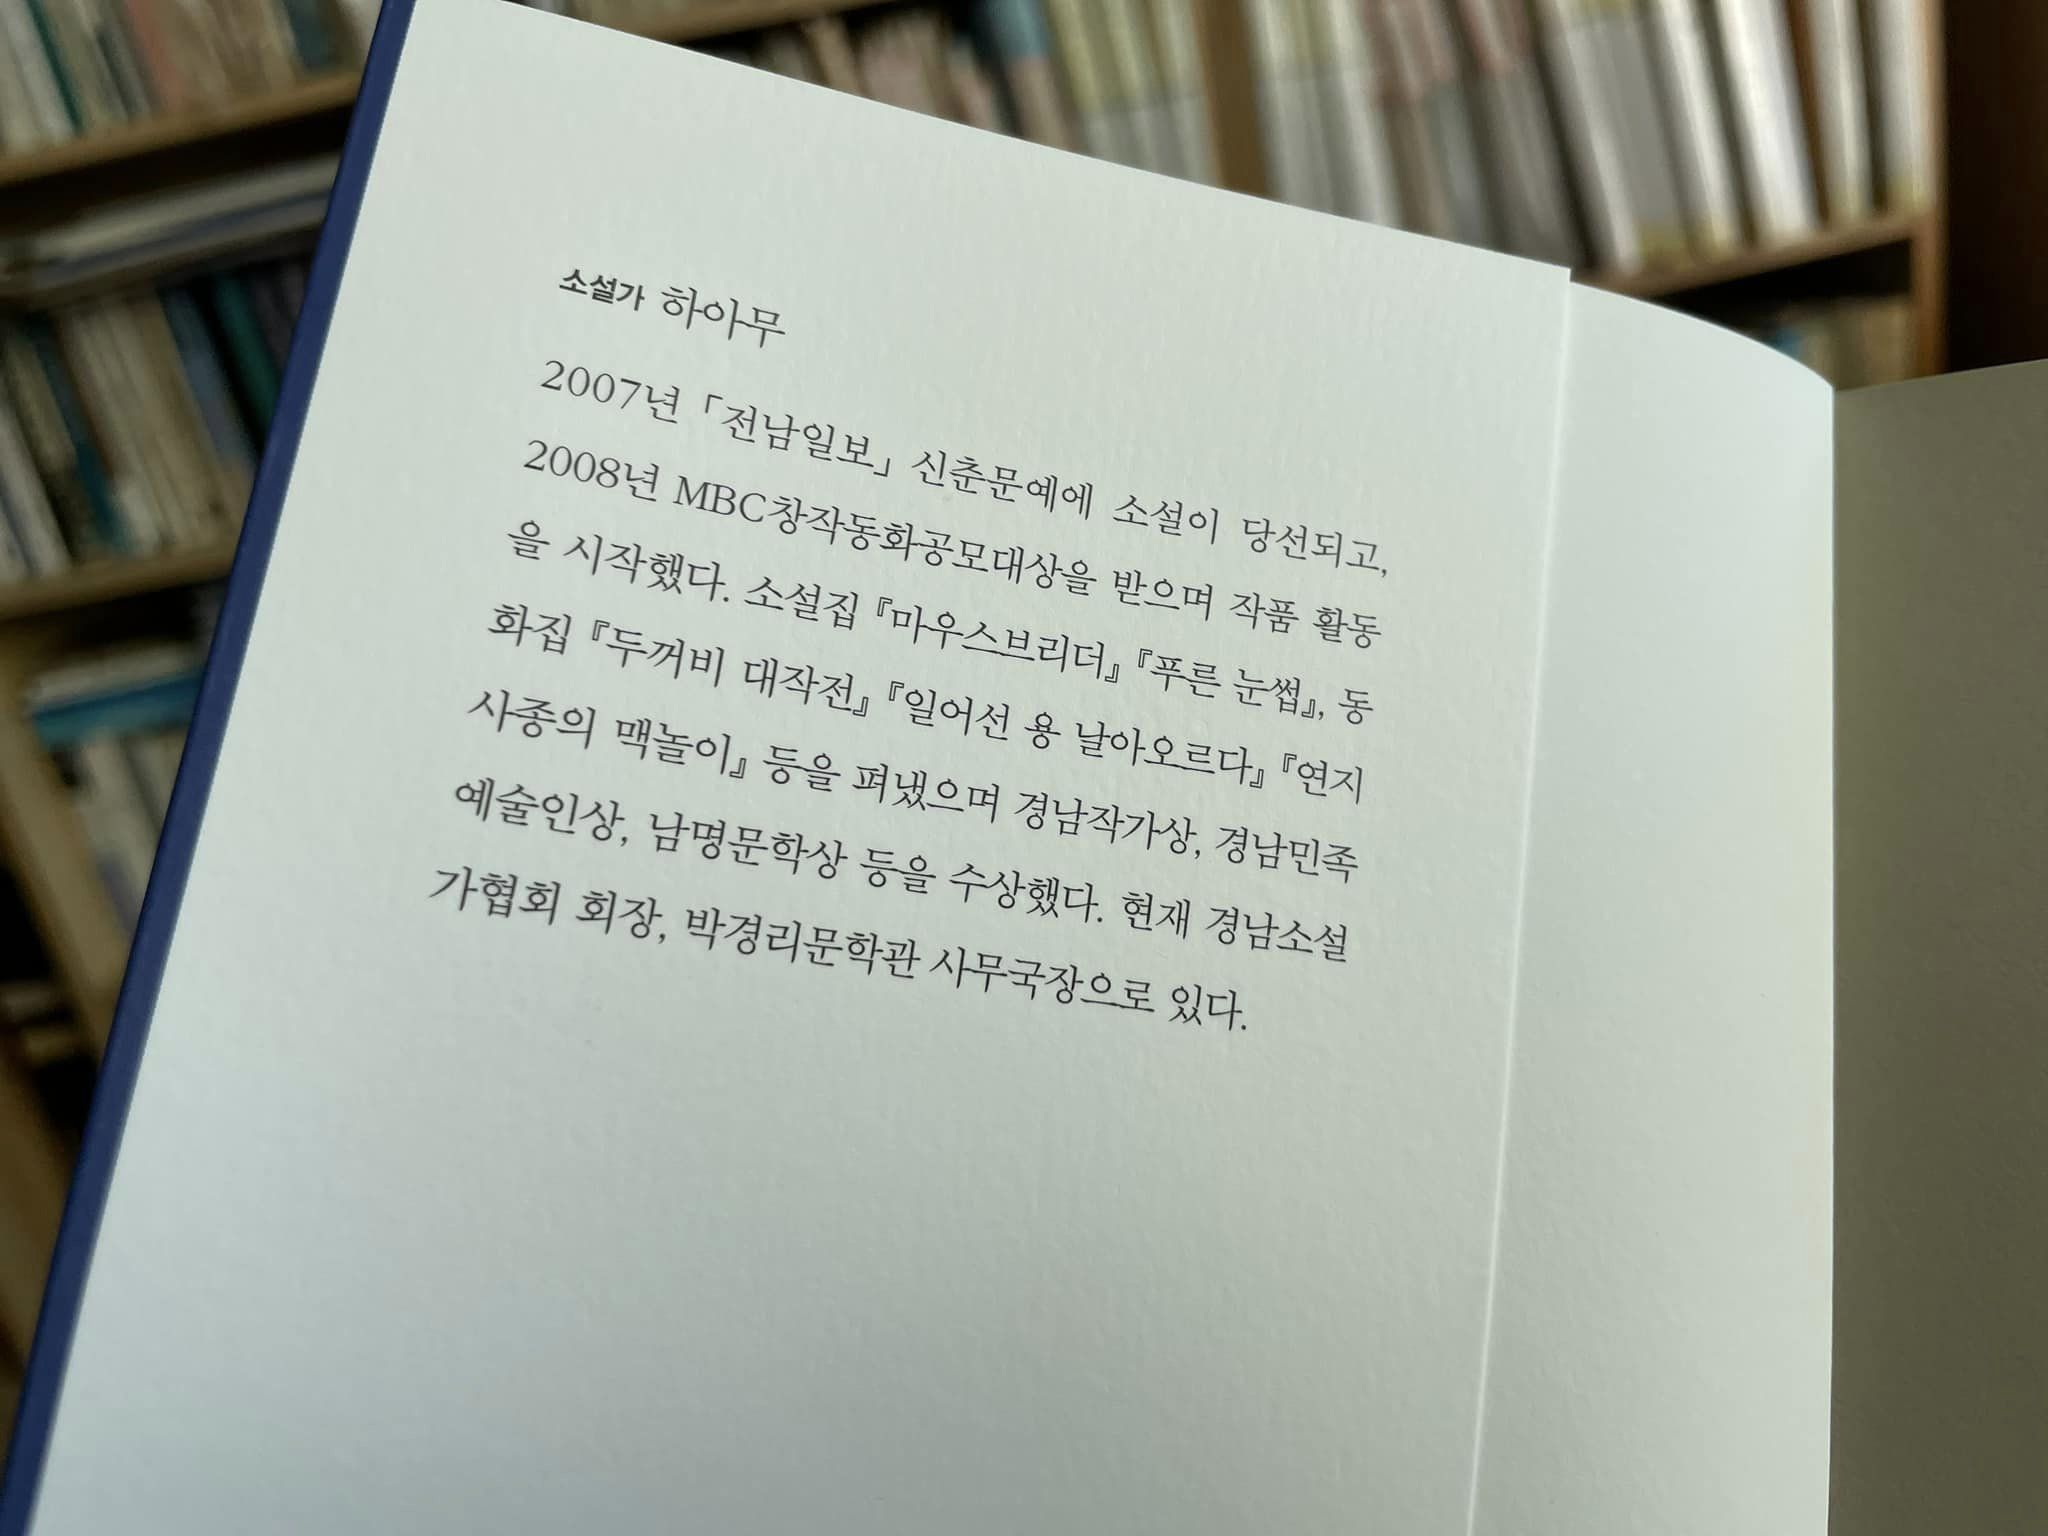 소설가 하아무
2007년 「전남일보」 신춘문예에 소설이 당선되고,
2008년 MBC창작동화공모대상을 받으며 작품 활동
을 시작했다. 소설집 『마우스브리더』 『푸른 눈썹』, 동
화집 『두꺼비 대작전』 『일어선 용 날아오르다』 『연지
사종의 맥놀이』 등을 펴냈으며 경남작가상, 경남민족
예술인상, 남명문학상 등을 수상했다. 현재 경남소설
가협회 회장, 박경리문학관 사무국장으로 있다.